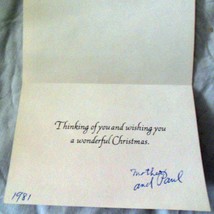 Thinking of you and wishing you
a wonderful Christmas.
Mother
and Paul
1981